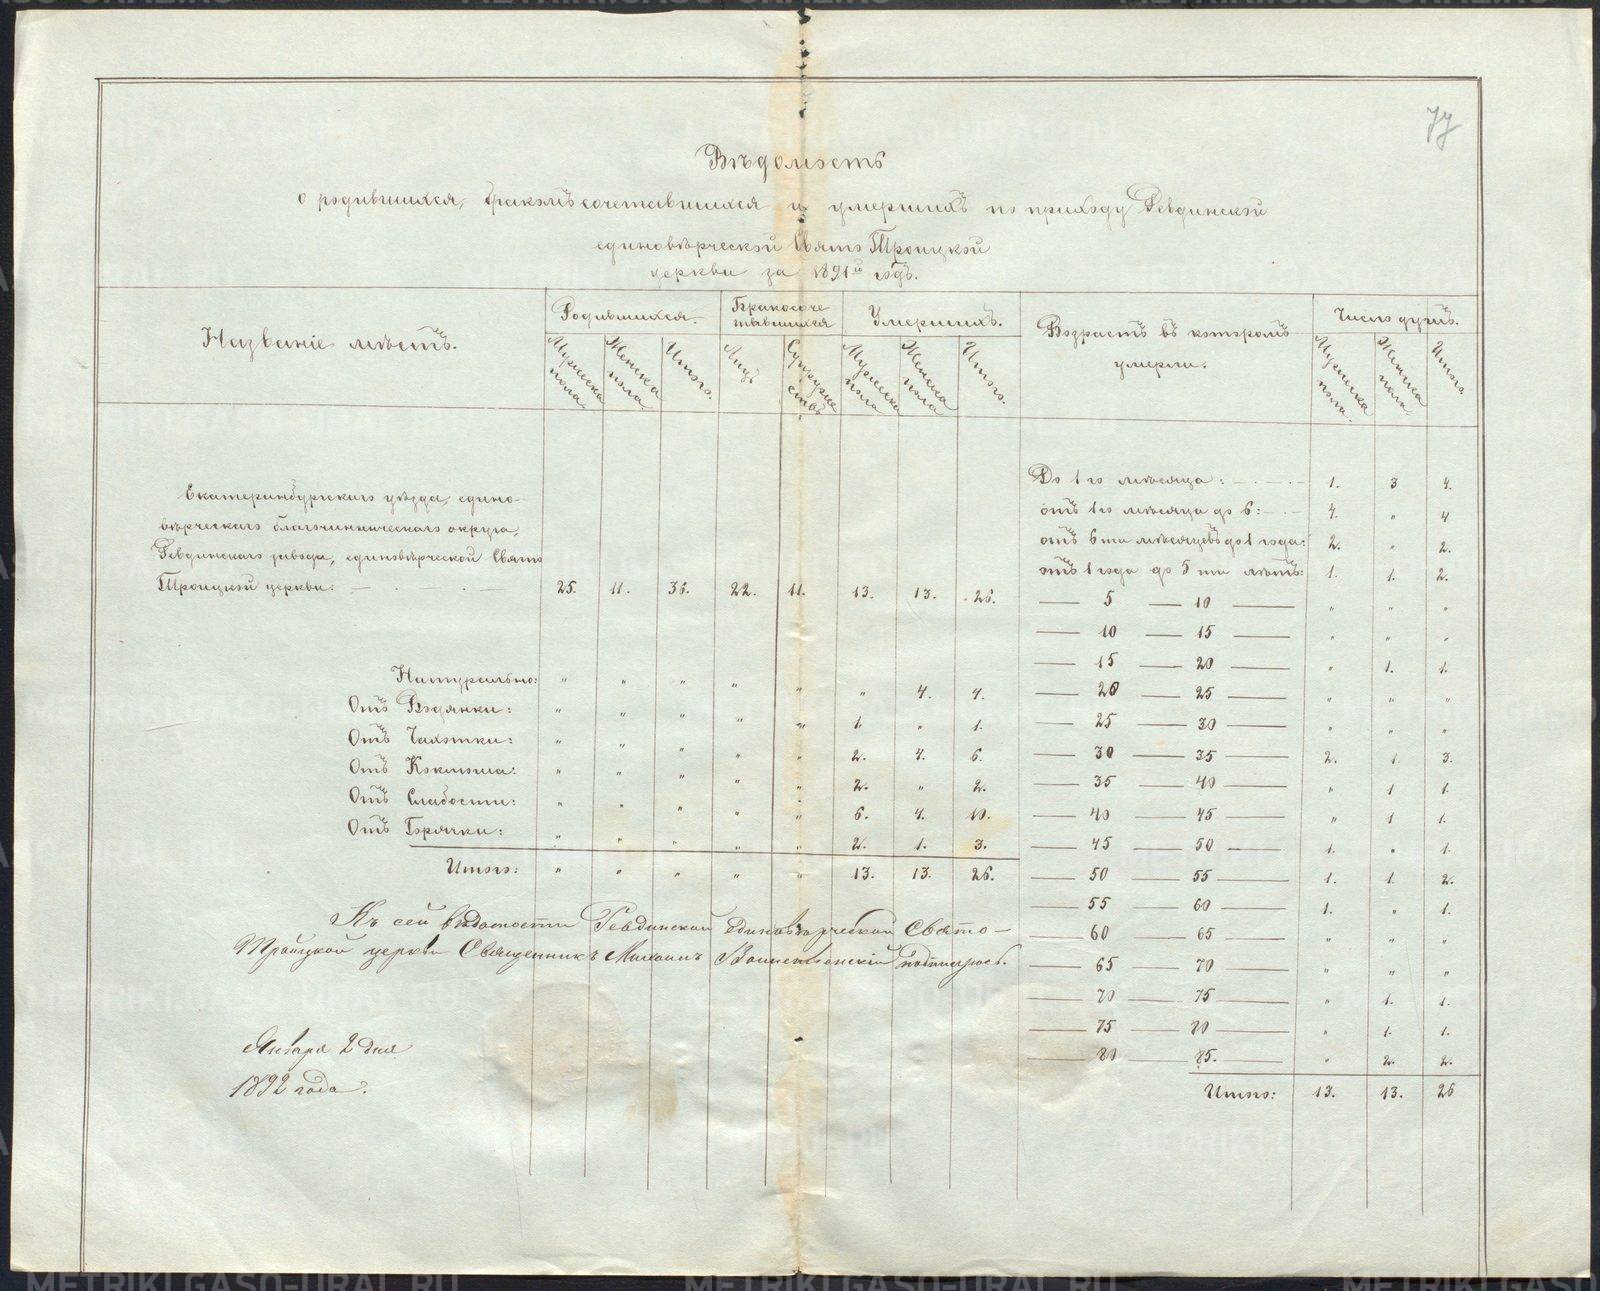 77
Вѣдомость
о родившихся, бракомъ сочетавшихся и умершихъ по приходу Ревдинской
единовѣрческой Свято Троицкой
церкви за 1891й годъ.
Названіе мѣстъ.
Родившихся.
Бракосоче
тавшихся
Умершихъ.
Возрастъ въ которомъ
умерли.
Число душъ.
Мужеска пола
Женска пола
Итого.
Лицъ
Супруже
ствъ
Мужеска пола
Женска пола
Итого.
Мужеска пола.
Женска пола.
Итого.
Екатеринбургскаго уѣзда, едино-
вѣрческаго благочинническаго округа,
Ревдинскаго завода, единовѣрческой Свято
Троицкой церкви: 25. 11. 36. 22. 11. 13. 13. 26.
Натурально: " " " " " " 4. 4.
Отъ Водянки: " " " " " 1. " 1.
Отъ Чахотки: " " " " " 2. 4. 6.
Отъ Коклюша: " " " " " 2. " 2.
Отъ Слабости: " " " " " 6. 4. 10.
Отъ Горячки: " " " " " 2. 1. 3.
Итого: " " " " " 13. 13. 26.
До 1 го мѣсяца: 1. 3 4.
отъ 1 го мѣсяца до 6: 4. " 4
отъ 6 ти мѣсяцевъ до 1 года: 2. " 2.
отъ 1 года до 5 ти лѣтъ: 1. 1. 2.
— 5 — 10 — " " "
— 10 — 15 — " " "
— 15 — 20 — " 1. 1.
— 20 — 25 — " " "
— 25 — 30 — " " "
— 30 — 35 — 2. 1. 3.
— 35 — 40 — " 1 1.
— 40 — 45 — " 1 1.
— 45 — 50 — 1. " 1.
— 50 — 55 — 1. 1. 2.
— 55 — 60 — 1. " 1.
— 60 — 65 — " " "
— 65 — 70 — " " "
— 70 — 75 — " 1. 1.
— 75 — 80 — " 1. 1.
— 80 — 85. — " 2. 2.
Итого: 13. 13. 26
Къ сей вѣдомости Ревдинской Единовѣрческой Свято-
Троицкой церкви Священникъ Михаилъ подписуюсь.
Января 2 дня
1892 года.
METRIKI.GASO-URAL.RU